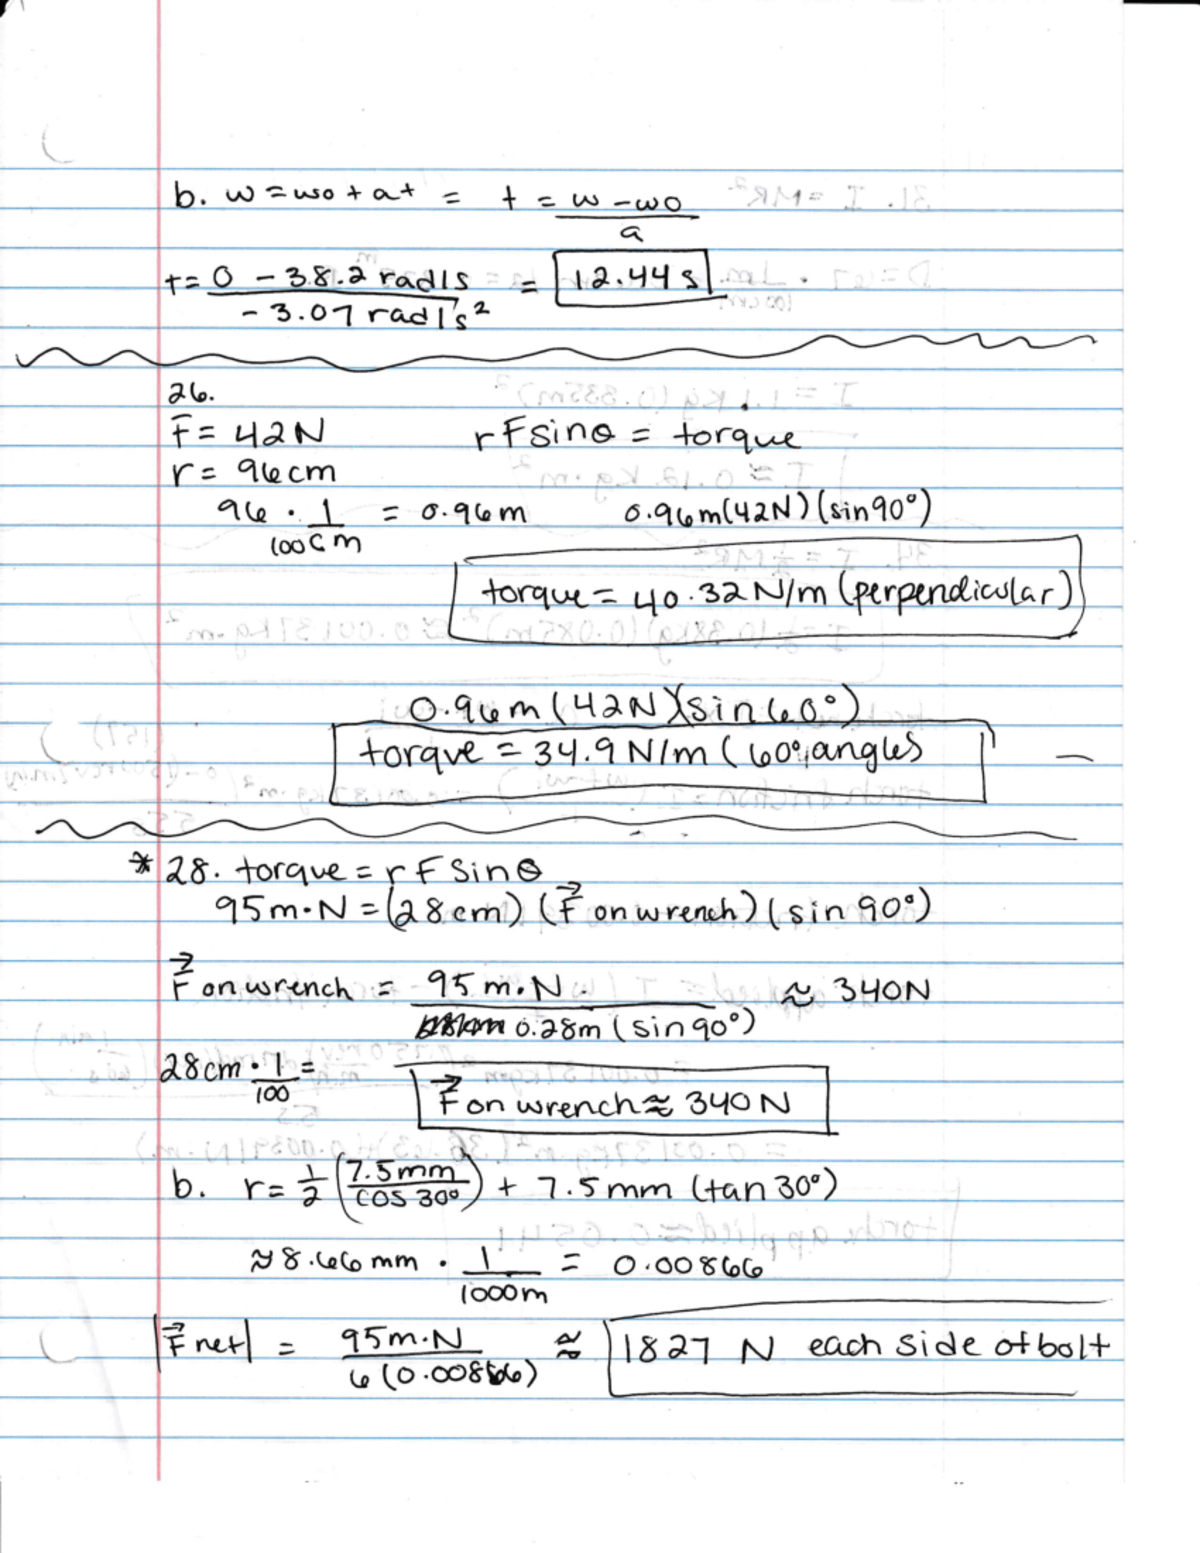 b. w = wo + at = t = w - wo / a
t = 0 - 38.2 rad/s / -3.07 rad/s² = 12.44 s
26.
F = 42N rFsinθ = torque
r = 96cm
96 · 1/100cm = 0.96m 0.96m(42N)(sin90°)
torque = 40.32 N/m (perpendicular)
0.96m(42N)(sin60°)
torque = 34.9 N/m (60° angles
* 28. torque = rFSinθ
95m·N = (28cm) (F⃗ on wrench)(sin 90°)
F⃗ on wrench = 95 m·N / 0.28m (sin90°) ≈ 340N
28cm · 1/100 =
F⃗ on wrench ≈ 340N
b. r = 1/2 (7.5mm / cos 30°) + 7.5mm (tan30°)
≈ 8.66mm · 1/1000m = 0.00866
|F⃗net| = 95m·N / 6(0.00866) ≈ 1827 N each side of bolt